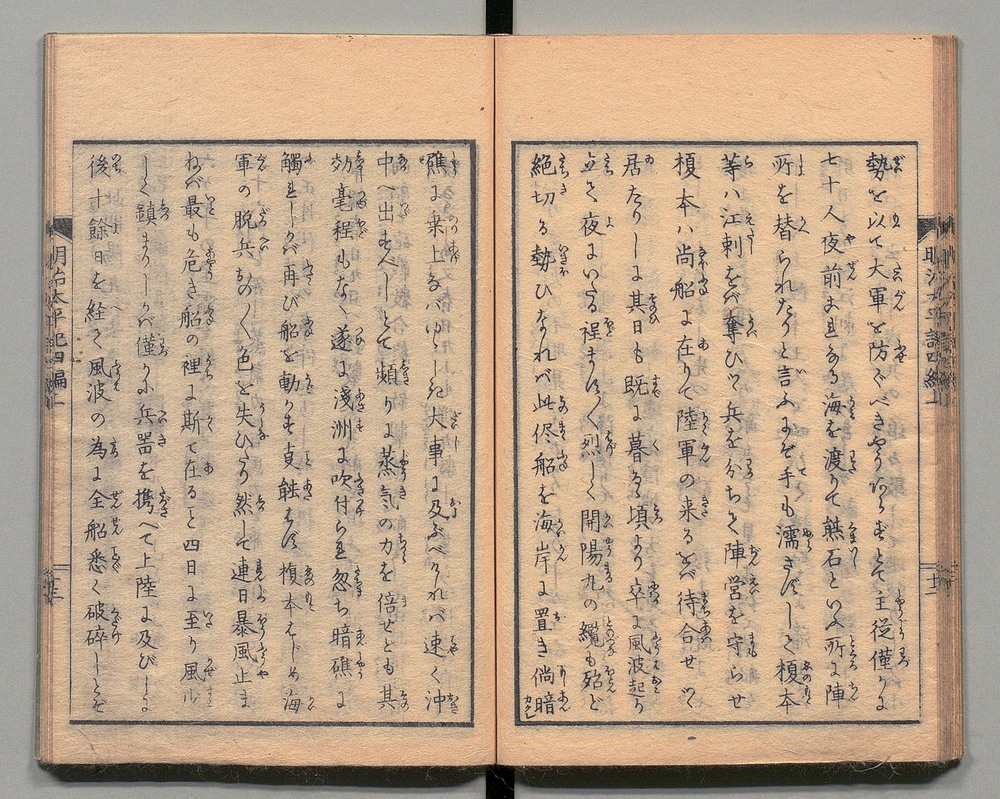 勢を以て大軍を防ぐべきやうあらずとて主従僅かに
七十人夜前よりある海を渡りて熊石といふ所に陣
所を替られたりと言ふかぞ手も濡さずして榎本
等ハ江刺をバ奪ひつ兵をわかちて陣営を守らせ
榎本ハ尚船に在りて陸軍の来るをバ待合せつ
居たりしに其日も既に暮る頃より卒に風波起り
立て夜にいたる程ますく烈しく開陽丸の纜も殆ど
絶切る勢ひなれバ此侭船を海岸に置き倘暗
礁に乗上なバゆゝしき大事に及ぶべけれバ速く沖
中へ出すべしとて頻りに蒸気の力を倍せども其
効毫程もなく遂に浅洲に吹付られ忽ち暗礁に
觸れしかバ再び船を動かす㕝能はず榎本はじめ海
軍の脱兵ものく色を失ひたり然して連日暴風止ま
ねバ最も危き船の裡に斯て在ると四日に至り風少
しく鎮まりしかバ僅かに兵器を携へて上陸に及びしに
後十餘日を経て風波の為に全船悉く破碎しとを
明治太平記四編上
十二
明治太平記四編上
十三